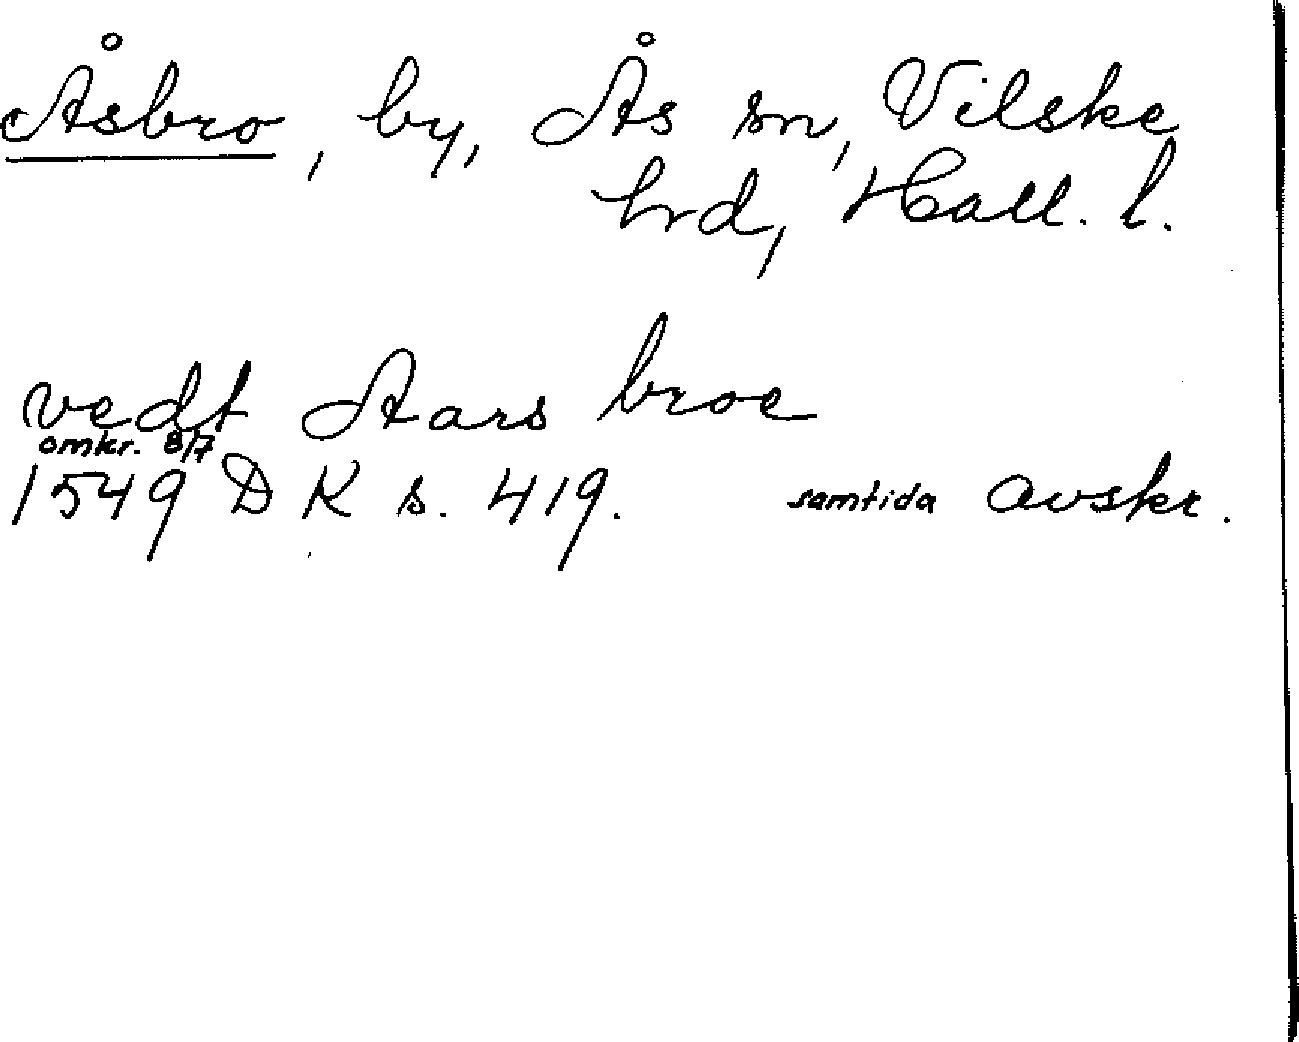 Åsbro, by, Ås sn, Vilske
hrd, Hall. l.
vedt Aars broe
omkr. 8/7
1549 DK s. 419. samtida avskr.